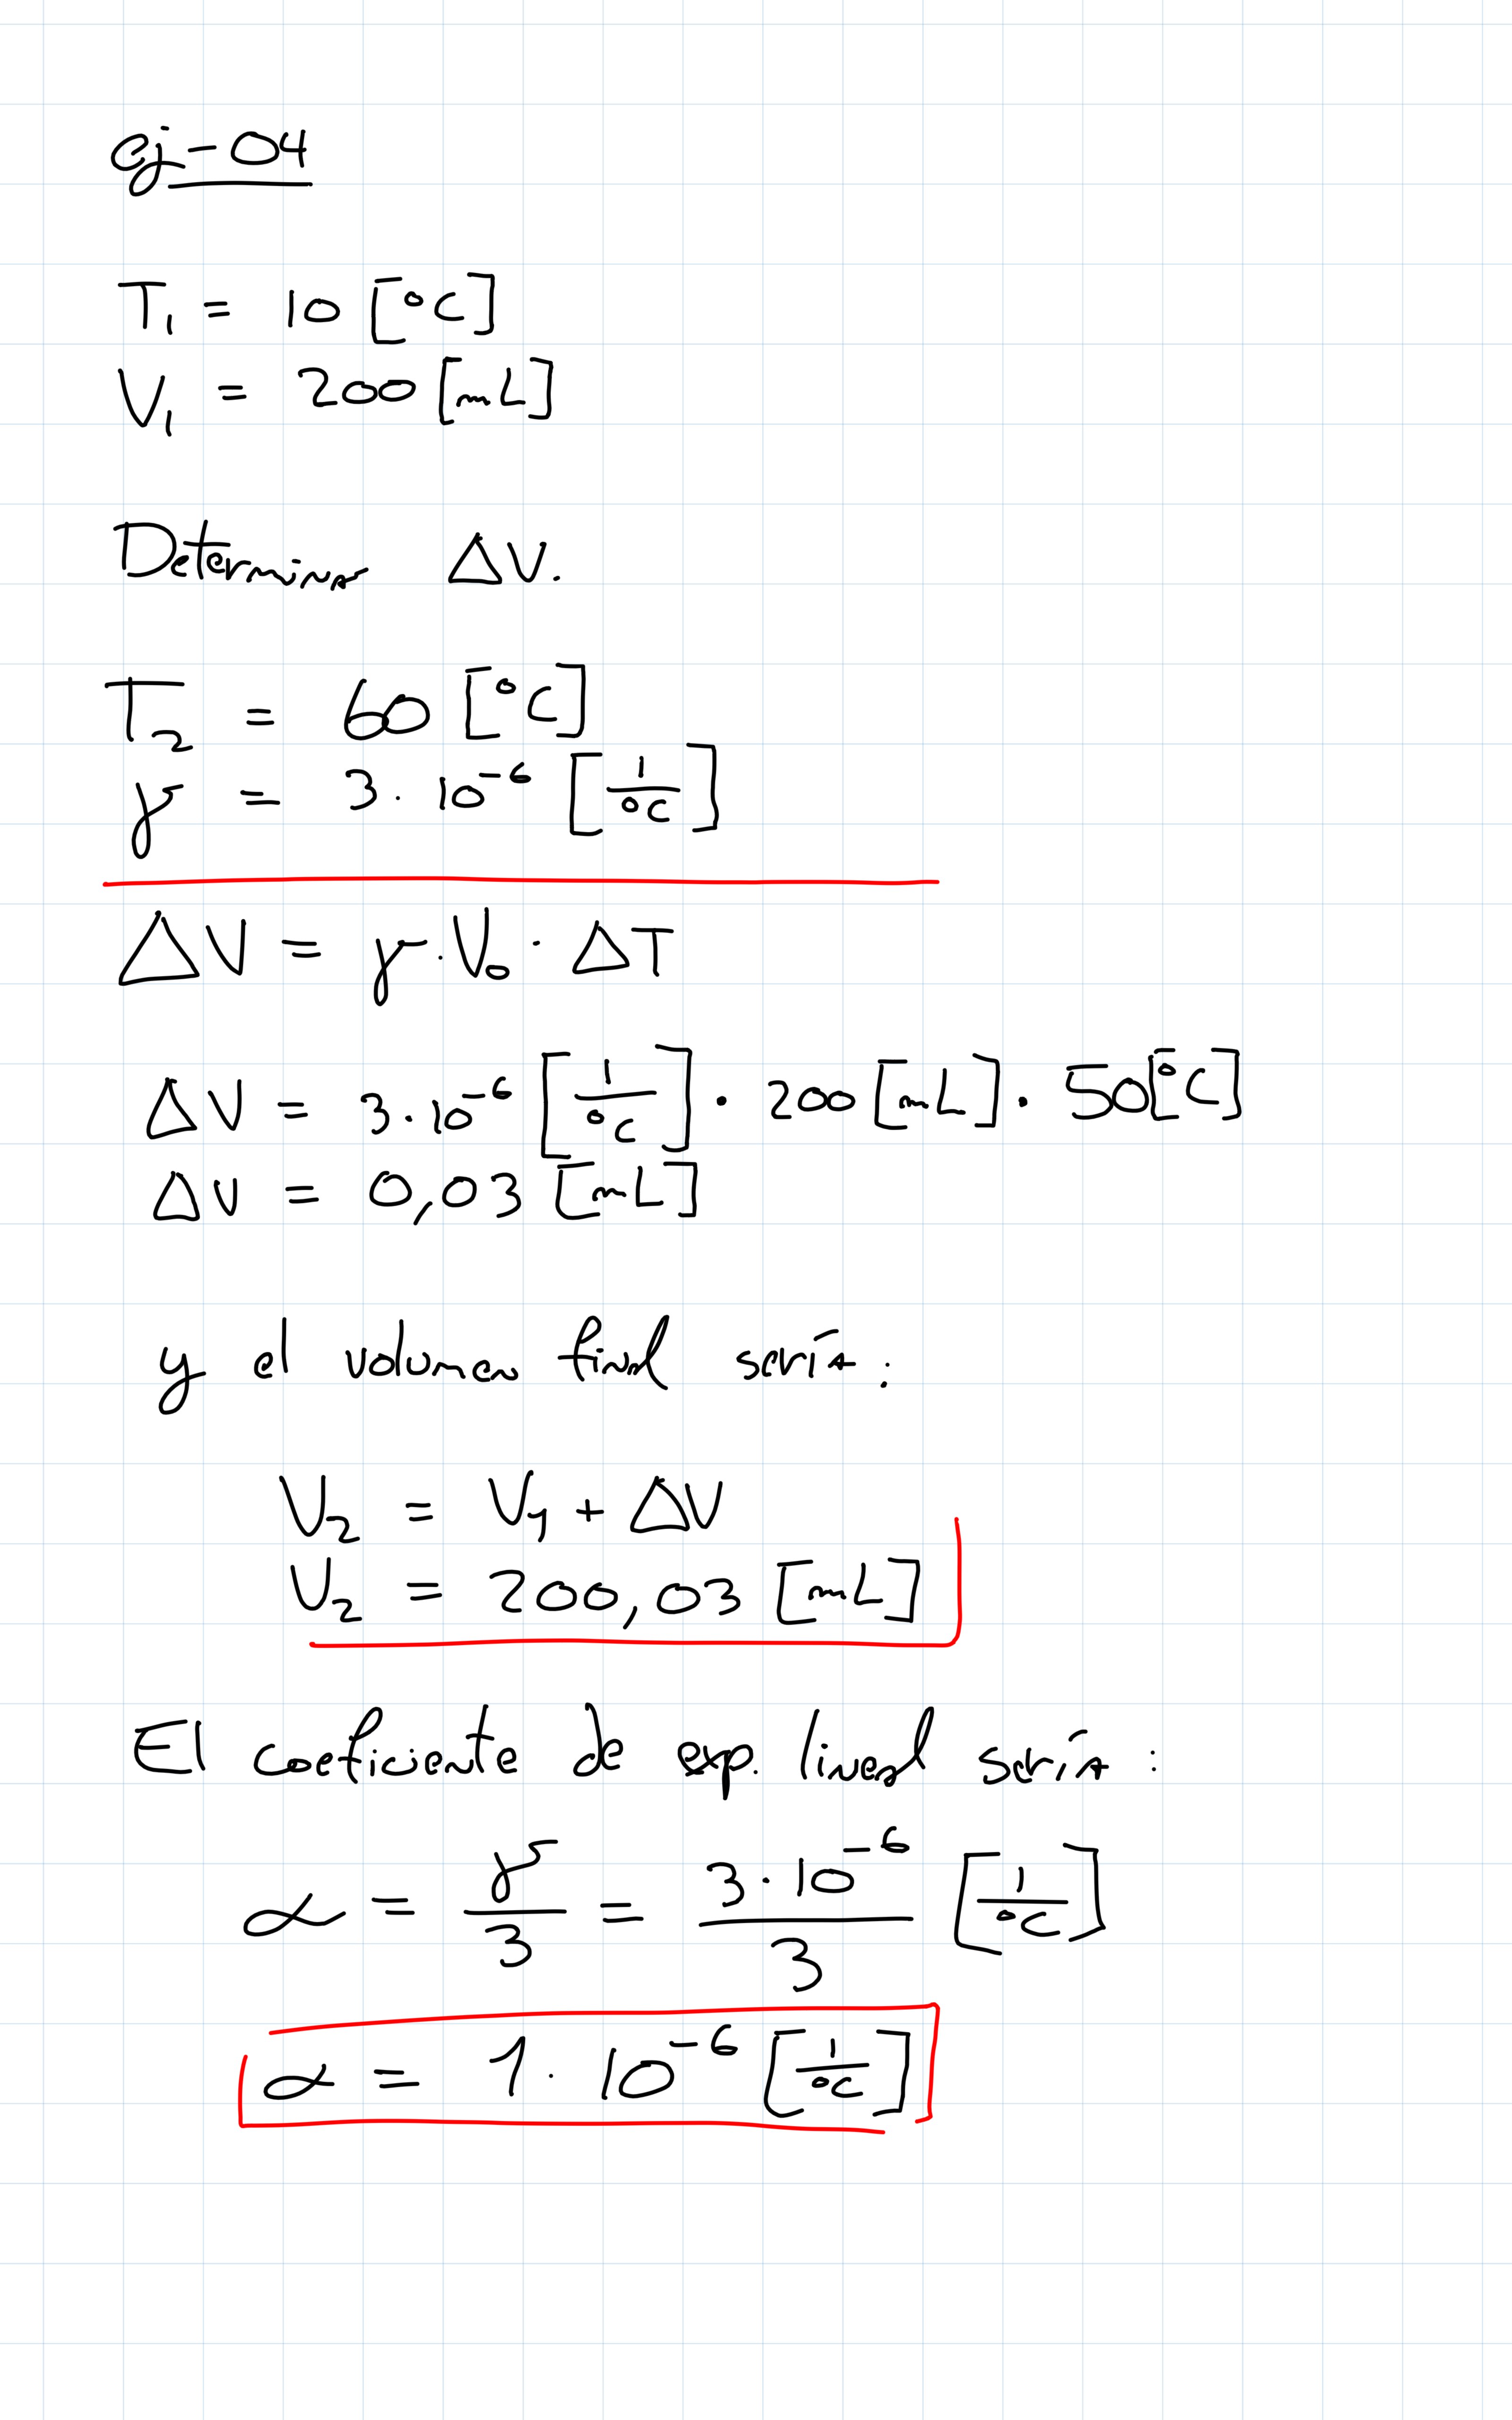 ej-04
T₁ = 10 [°C]
V₁ = 200 [mL]
Determinar ΔV.
T₂ = 60 [°C]
γ = 3·10⁻⁶ [1/°C]
ΔV = γ·V₀·ΔT
ΔV = 3·10⁻⁶ [1/°C] · 200 [mL] · 50 [°C]
ΔV = 0,03 [mL]
y el volumen final sería:
V₂ = V₁ + ΔV
V₂ = 200,03 [mL]
El coeficiente de exp. lineal sería:
α = γ/3 = 3·10⁻⁶/3 [1/°C]
α = 1·10⁻⁶ [1/°C]